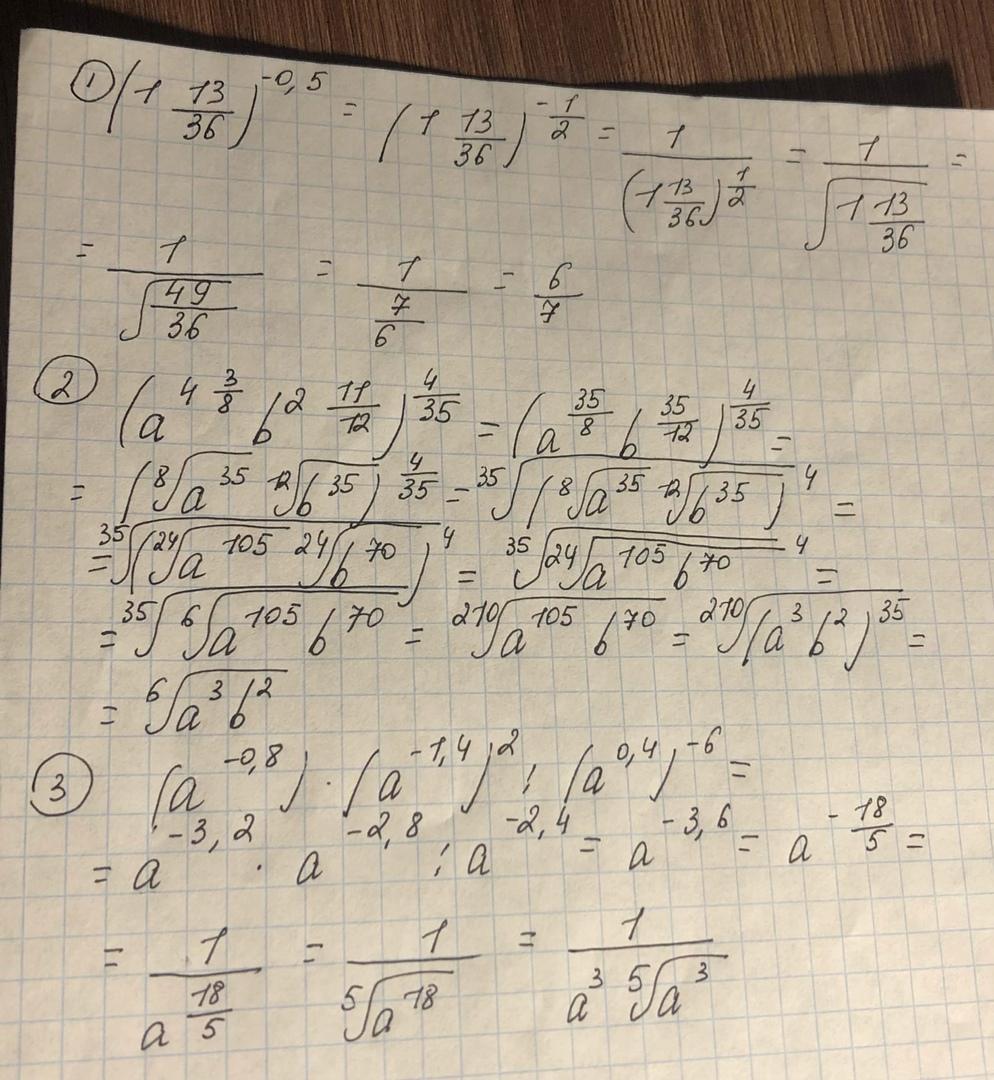 ① (1 13/36)^-0,5 = (1 13/36)^-1/2 = 1/(1 13/36)^1/2 = 1/√(1 13/36) =
= 1/√(49/36) = 1/(7/6) = 6/7
② (a^4 3/8 b^2 11/12)^4/35 = (a^35/8 b^35/12)^4/35 =
= (⁸√a^35 ¹²√b^35)^4/35 = ³⁵√(⁸√a^35 ¹²√b^35)^4 =
= ³⁵√(²⁴√a^105 ²⁴√b^70)^4 = ³⁵√²⁴√a^105 b^70^4 =
= ³⁵√⁶√a^105 b^70 = ²¹⁰√a^105 b^70 = ²¹⁰√(a^3 b^2)^35 =
= ⁶√a^3 b^2
③ (a^-0,8) · (a^-1,4)^2 : (a^0,4)^-6 =
= a^-3,2 · a^-2,8 : a^-2,4 = a^-3,6 = a^-18/5 =
= 1/a^18/5 = 1/⁵√a^18 = 1/a^3 ⁵√a^3